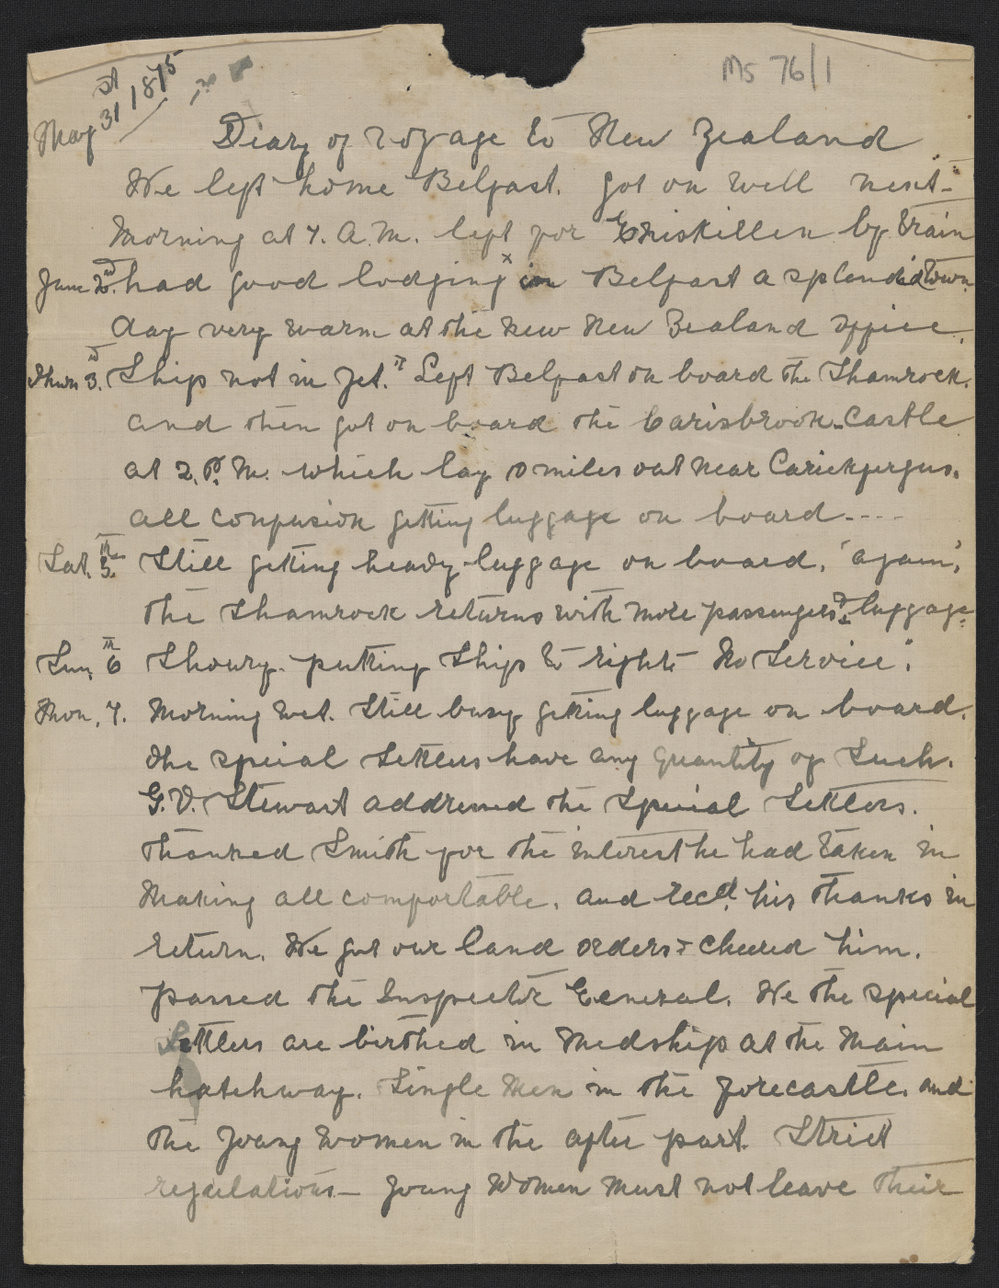 MS 76/1
May 31st 1875
Diary of voyage to New Zealand
We left home Belfast. Got on well next-
Morning at 7. A.M. left for Eniskillen by train
June 2nd. had good lodging x in Belfast a splendid town
day very warm at the new New Zealand office.
Thurs 3rd. Ship not in yet." Left Belfast on board the Shamrock.
and then got on board the Carisbrook-Castle
at 2. P. M. which lay 10 miles out near Carickfergus.
all confusion getting luggage on board----
Sat. 5th. Still getting heavy luggage on board. 'again,'
the Shamrock returns with more passengers & luggage
Sun, 6th Showry. putting Ship to rights No Service.
Mon, 7. Morning wet. Still busy getting luggage on board.
The special Settlers have any quantity of Such.
G. V. Stewart addressed the Special Settlers.
thanked Smith for the interest he had taken in
Making all comfortable. and recd. his thanks in
return. We got our land orders & cheered him.
passed the Inspector General. We the special
Settlers are birthed in Midship at the Main
hatchway. Single Men in the forecastle. and
the young women in the after part. Strict
regulations- young women must not leave their